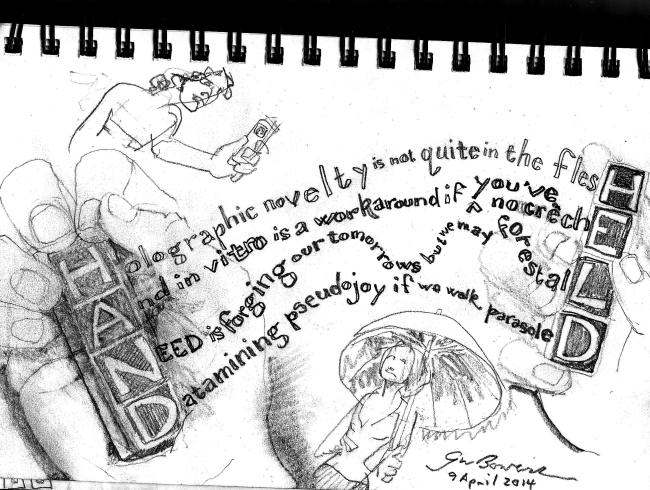 Holographic novelty is not quite in the flesH
And in vitro is a workaround if you've no crèchE
NEED is forging our tomorrows but we may forestalL
Datamining pseudojoy if we walk parasoleD
9 April 2014